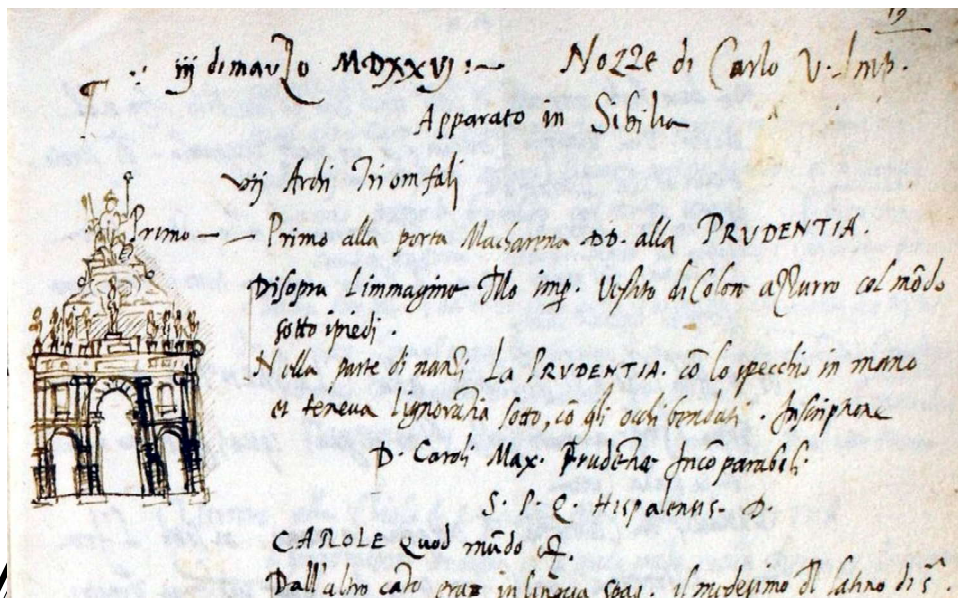 19
iij di marzo MDXXVI :~ Nozze di Carlo V. Imp.
Apparato in Sibilia
vij Archi Triomfali
Primo — — Primo alla porta Macharena DD. alla PRVDENTIA.
Disopra limmagine dllo imp. vestito di Colore azzurro col mõdo
sotto ipiedi.
Nella parte di nanzi La PRVDENTIA. cõ lo specchio in mano
et teneua lignorãzia sotto, cõ gli occhi bendati. Inscriptione
D. Caroli Max. Prudentie Incõparabili
S. P. Q. Hispalensis. D.
CAROLE Quod mũdo
Dall altro canto era in lingua spag. il medesimo dl latino di sª.